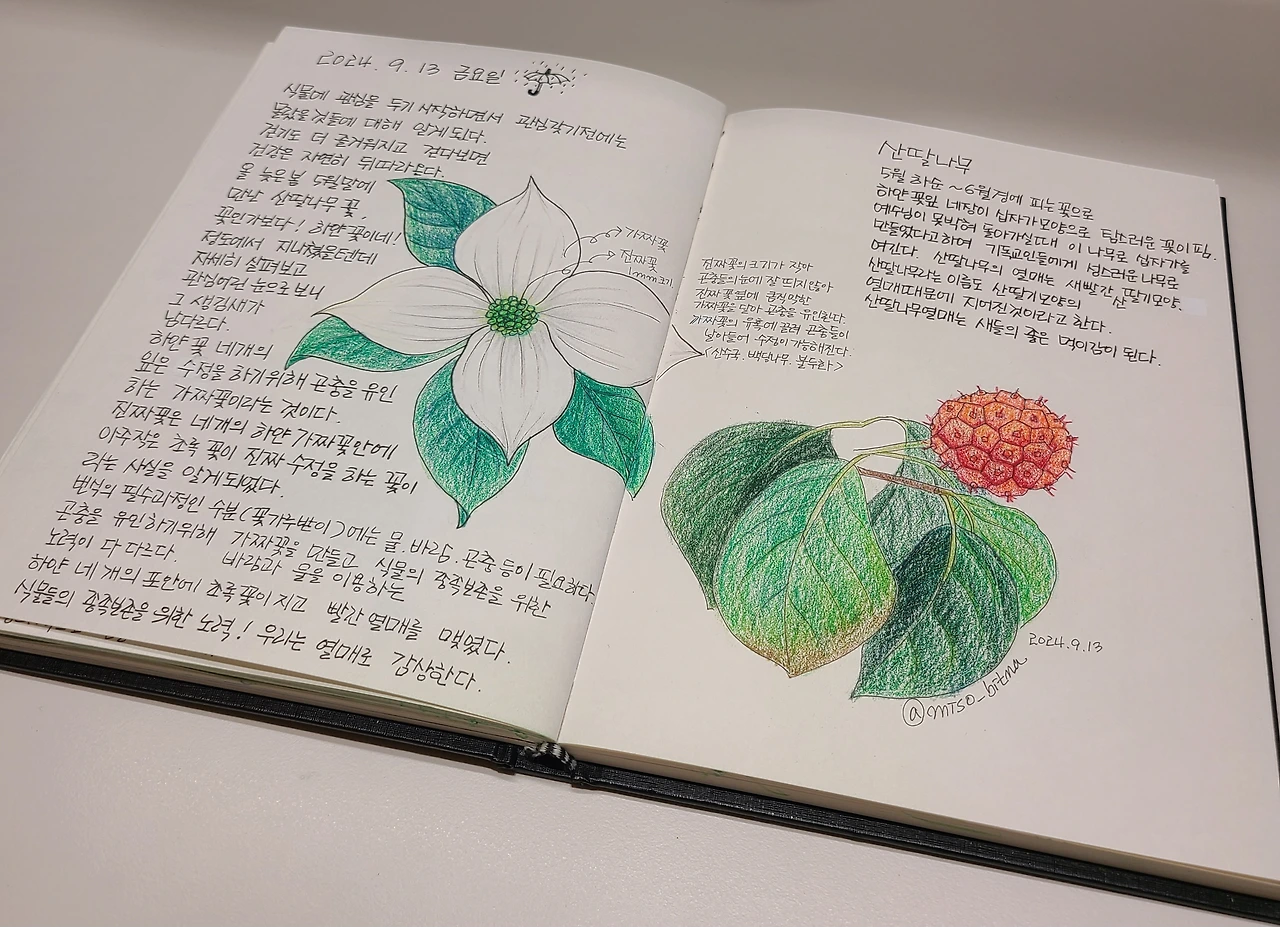 2024. 9. 13 금요일
식물에 관심을 두기 시작하면서 관심갖기전에는
몰랐을것들에 대해 알게 된다.
걷기도 더 즐거워지고 걷다보면
건강은 자연히 뒤따라온다.
올 늦은봄 5월말에
만난 산딸나무 꽃,
꽃인가보다! 하얀 꽃이네!
정도에서 지나쳤을텐데
자세히 살펴보고
관심어린 눈으로 보니
그 생김새가
남다르다.
하얀 꽃 네개의
잎은 수정을 하기위해 곤충을 유인
하는 가짜꽃이라는 것이다.
진짜꽃은 네개의 하얀 가짜꽃안에
아주작은 초록 꽃이 진짜 수정을 하는 꽃이
라는 사실을 알게되었다.
번식의 필수과정인 수분(꽃가루받이)에는 물.바람.곤충등이 필요하다.
곤충을 유인하기위해 가짜꽃을 만들고 식물의 종족보존을 위한
노력이 다 다르다. 바람과 물을 이용하는
하얀 네 개의 포안에 초록꽃이 지고 빨간 열매를 맺었다.
식물들의 종족보존을 위한 노력! 우리는 열매로 감상한다.
가짜꽃
진짜꽃
1mm크기
진짜꽃의 크기가 작아
곤충들의 눈에 잘 띄지않아
진짜꽃옆에 큼직막한
가짜꽃을 달아 곤충을 유인한다.
가짜꽃의 유혹에 끌려 곤충들이
날아들어 수정이 가능해진다.
<산수국. 백당나무. 불두화>
산딸나무
5월 하순 ~6월경에 피는 꽃으로
하얀 꽃잎 네장이 십자가모양으로 탐스러운 꽃이 핌.
예수님이 못박혀 돌아가실때 이 나무로 십자가를
만들었다고하여 기독교인들에게 성스러운 나무로
여긴다. 산딸나무의 열매는 새빨간 딸기모양.
산딸나무라는 이름도 산딸기모양의 산
열매때문에 지어진것이라고 한다.
산딸나무열매는 새들의 좋은 먹이감이 된다.
2024.9.13
@mtso_bitna